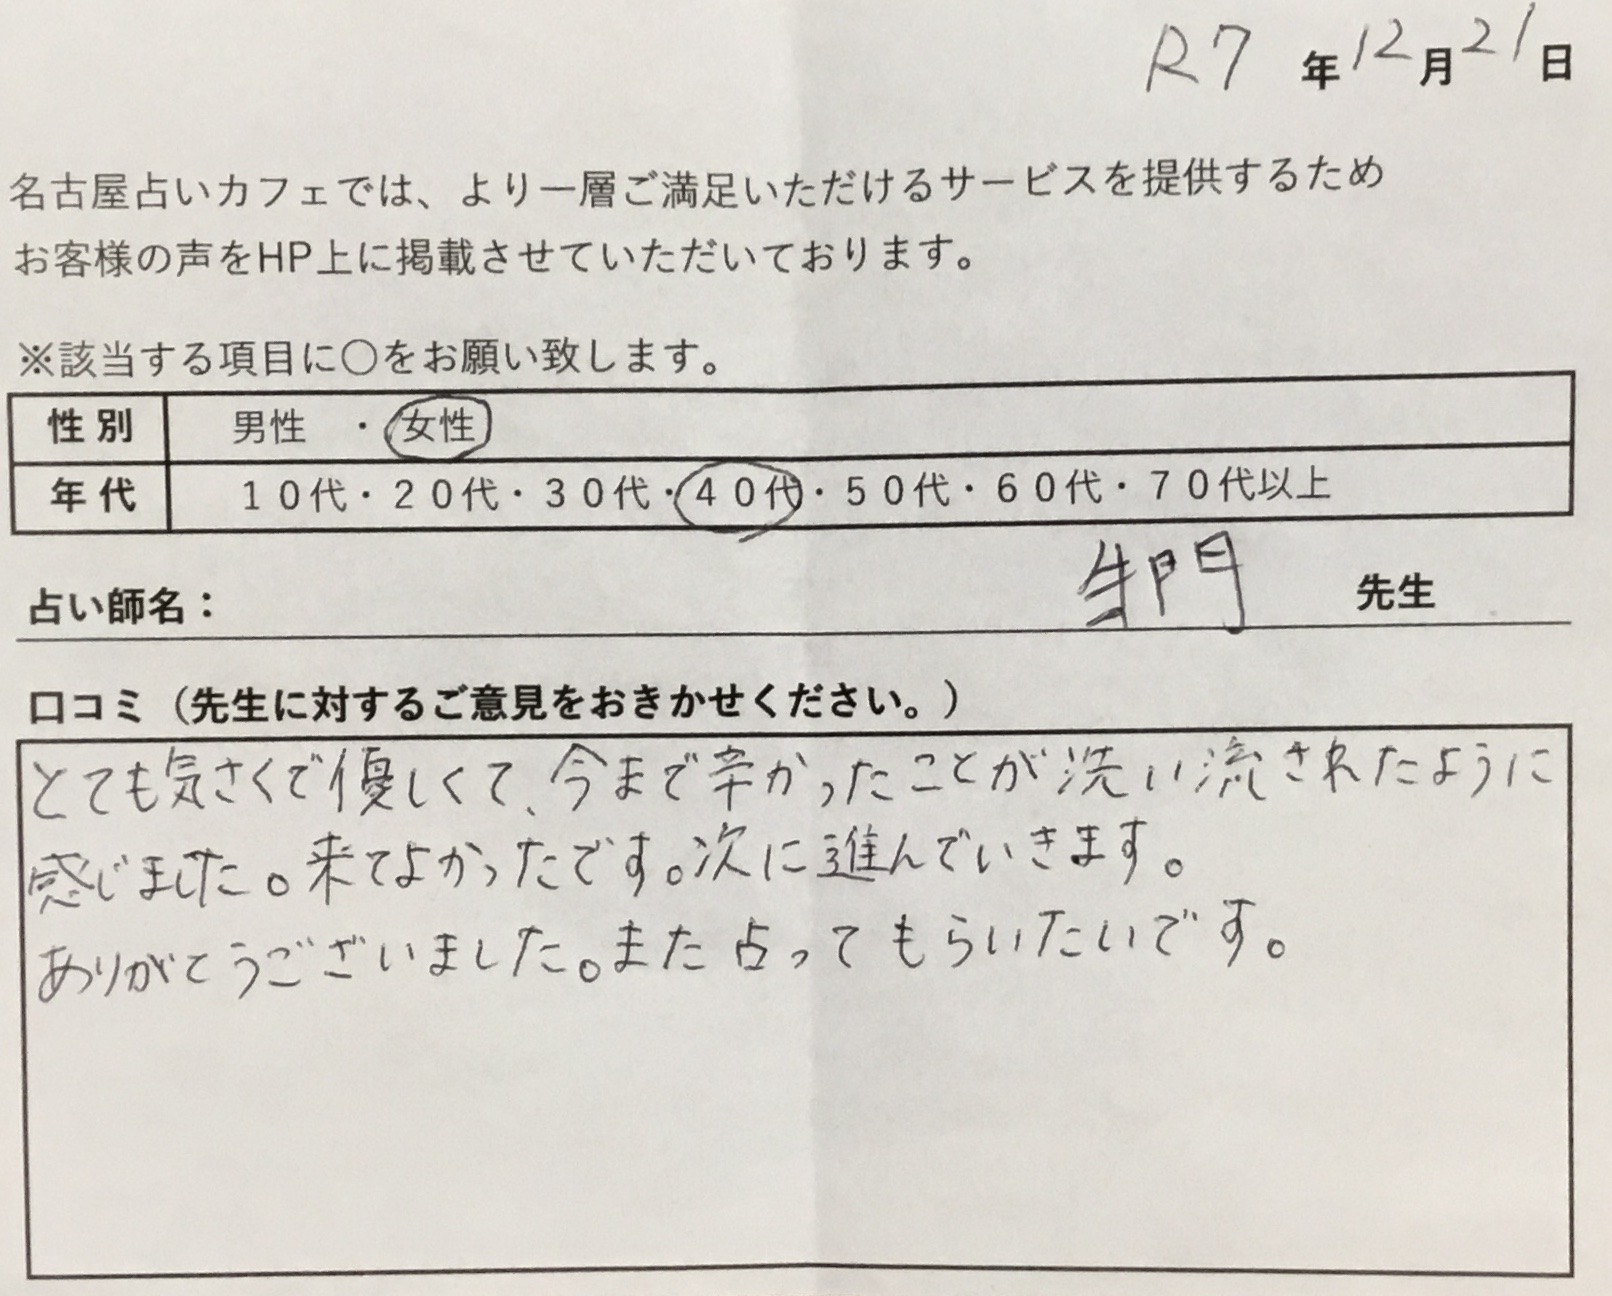 R7 年 12 月 21 日
名古屋占いカフェでは、より一層ご満足いただけるサービスを提供するため
お客様の声をHP上に掲載させていただいております。
※該当する項目に〇をお願い致します。
性別 男性 ・ 女性
年代 10代・20代・30代・40代・50代・60代・70代以上
占い師名： 門 先生
口コミ（先生に対するご意見をおきかせください。）
とても気さくで優しくて、今まで辛かったことが洗い流されたように
感じました。来てよかったです。次に進んでいきます。
ありがとうございました。また占ってもらいたいです。